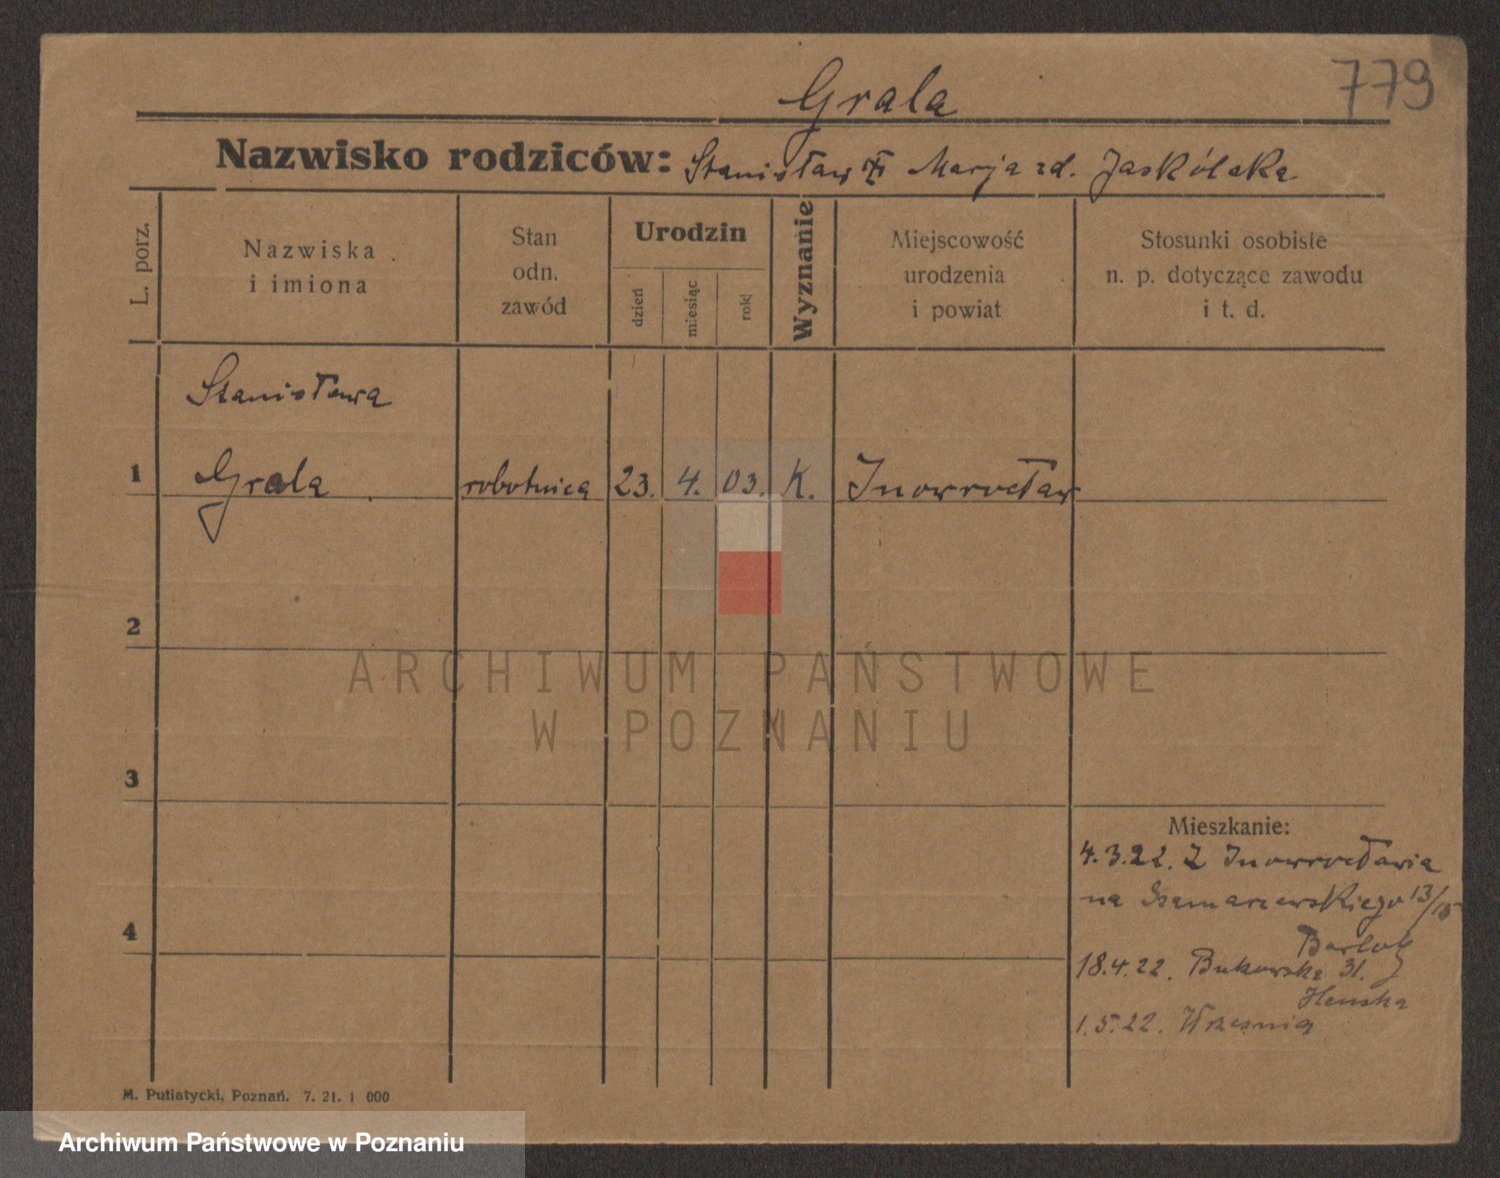 779
Grala
Nazwisko rodziców: Stanisław Marja zd. Jaskólska
L. porz.
Nazwiska
i imiona
Stan
odn.
zawód
Urodzin
dzień
miesiąc
rok
Wyznanie
Miejscowość
urodzenia
i powiat
Stosunki osobiste
n. p. dotyczące zawodu
i t. d.
Stanisława
1 Grala robotnica 23. 4. 03. K. Inowrocław
2
ARCHIWUM PAŃSTWOWE
W POZNANIU
3
Mieszkanie:
4.3.22. Z Inowrocławia
na Szamarzewskiego 13/15
4
18.4.22. Bukowska 31.
1.5.22. Września
M. Putiatycki, Poznań. 7. 21. 1 000
Archiwum Państwowe w Poznaniu